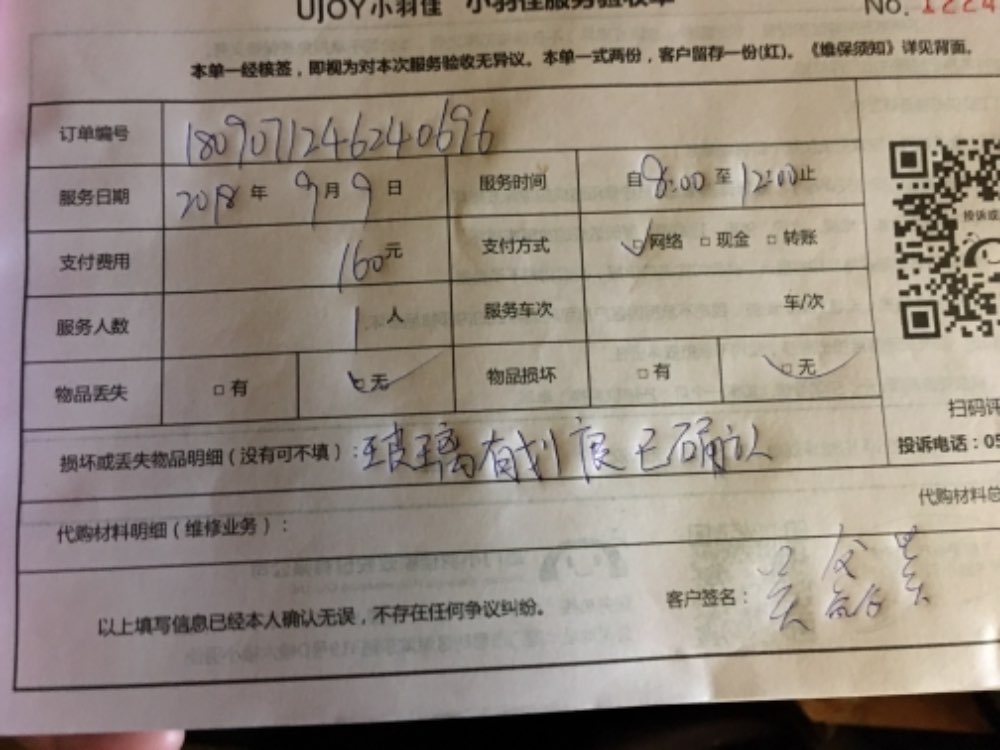 UJOY小羽佳 小羽佳服务验收单
No. 1224
本单一经核签，即视为对本次服务验收无异议。本单一式两份，客户留存一份(红)。《维保须知》详见背面。
订单编号 1809071246240696
服务日期 2018年 9月 9日 服务时间 自8:00至12:00止
支付费用 160元 支付方式 ☑网络 □现金 □转账
服务人数 1人 服务车次 车/次
物品丢失 □有 ☑无 物品损坏 □有 ☑无
扫码评
损坏或丢失物品明细（没有可不填）：玻璃有划痕已确认
投诉电话：05
代购材料总
代购材料明细（维修业务）：
以上填写信息已经本人确认无误，不存在任何争议纠纷。
客户签名：